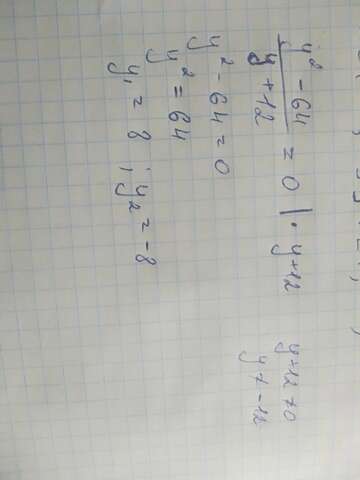 y² - 64 / y + 12 = 0 | · y+12 y+12 ≠ 0
y ≠ -12
y² - 64 = 0
y² = 64
y₁ = 8 ; y₂ = -8